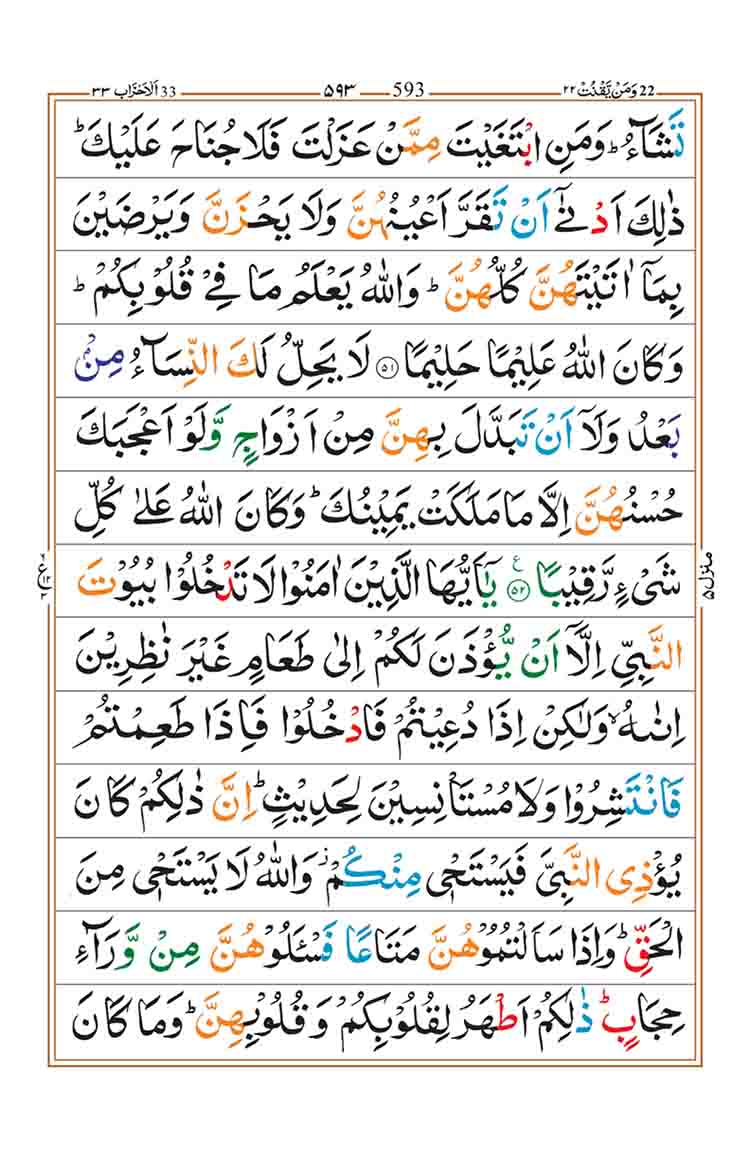 22 وَمَنْ يَّقْنُتْ ٢٢ 593 ۵۹۳ 33 اَلْاَحْزَاب ٣٣
تَشَآءُ ؕ وَمَنِ ابْتَغَيْتَ مِمَّنْ عَزَلْتَ فَلَا جُنَاحَ عَلَيْكَ ؕ
ذٰلِكَ اَدْنٰۤى اَنْ تَقَرَّ اَعْيُنُهُنَّ وَلَا يَحْزَنَّ وَيَرْضَيْنَ
بِمَاۤ اٰتَيْتَهُنَّ كُلُّهُنَّ ؕ وَاللّٰهُ يَعْلَمُ مَا فِىْ قُلُوْبِكُمْ ؕ
وَكَانَ اللّٰهُ عَلِيْمًا حَلِيْمًا ۵۱ لَا يَحِلُّ لَكَ النِّسَآءُ مِنْۢ
بَعْدُ وَلَاۤ اَنْ تَبَدَّلَ بِهِنَّ مِنْ اَزْوَاجٍ وَّلَوْ اَعْجَبَكَ
حُسْنُهُنَّ اِلَّا مَا مَلَكَتْ يَمِيْنُكَ ؕ وَكَانَ اللّٰهُ عَلٰى كُلِّ
شَىْءٍ رَّقِيْبًا ۵۲ ع يٰۤاَيُّهَا الَّذِيْنَ اٰمَنُوْا لَا تَدْخُلُوْا بُيُوْتَ
منزل ۵
النَّبِىِّ اِلَّاۤ اَنْ يُّؤْذَنَ لَكُمْ اِلٰى طَعَامٍ غَيْرَ نٰظِرِيْنَ
اِنٰىهُ ۙ وَلٰكِنْ اِذَا دُعِيْتُمْ فَادْخُلُوْا فَاِذَا طَعِمْتُمْ
فَانْتَشِرُوْا وَلَا مُسْتَاْنِسِيْنَ لِحَدِيْثٍ ؕ اِنَّ ذٰلِكُمْ كَانَ
يُؤْذِى النَّبِىَّ فَيَسْتَحْىٖ مِنْكُمْ ؗ وَاللّٰهُ لَا يَسْتَحْىٖ مِنَ
الْحَقِّ ؕ وَاِذَا سَاَلْتُمُوْهُنَّ مَتَاعًا فَسْئَلُوْهُنَّ مِنْ وَّرَآءِ
حِجَابٍ ؕ ذٰلِكُمْ اَطْهَرُ لِقُلُوْبِكُمْ وَقُلُوْبِهِنَّ ؕ وَمَا كَانَ